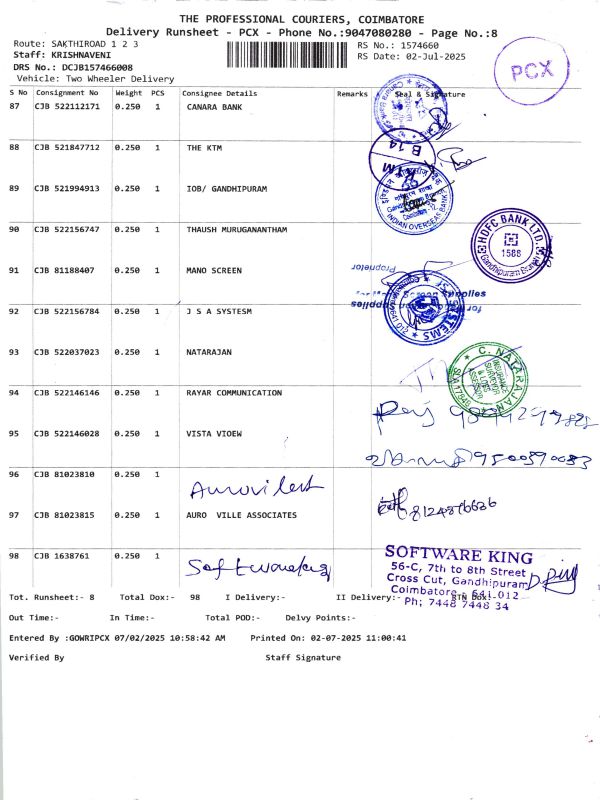 THE PROFESSIONAL COURIERS, COIMBATORE
Delivery Runsheet - PCX - Phone No.:9047080280 - Page No.:8
Route: SAKTHIROAD 1 2 3
RS No.: 1574660
Staff: KRISHNAVENI
RS Date: 02-Jul-2025
DRS No.: DCJB157466008
Vehicle: Two Wheeler Delivery
PCX
S No Consignment No Weight PCS Consignee Details Remarks Seal & Signature
87 CJB 522112171 0.250 1 CANARA BANK
88 CJB 521847712 0.250 1 THE KTM
B 14
KTM
89 CJB 521994913 0.250 1 IOB/ GANDHIPURAM
INDIAN OVERSEAS BANK
90 CJB 522156747 0.250 1 THAUSH MURUGANANTHAM
HDFC BANK LTD.
1588
Gandhipuram Branch
91 CJB 81188407 0.250 1 MANO SCREEN
Proprietor
92 CJB 522156784 0.250 1 J S A SYSTESM
93 CJB 522037023 0.250 1 NATARAJAN
C. NATARAJAN
INSURANCE
SURVEYOR
& LOSS
ASSESSOR
94 CJB 522146146 0.250 1 RAYAR COMMUNICATION
95 CJB 522146028 0.250 1 VISTA VIOEW
9500590083
96 CJB 81023810 0.250 1
97 CJB 81023815 0.250 1 AURO VILLE ASSOCIATES
8124876636
98 CJB 1638761 0.250 1
SOFTWARE KING
56-C, 7th to 8th Street
Cross Cut, Gandhipuram
Coimbatore - 641 012
Ph; 7448 7448 34
Tot. Runsheet:- 8 Total Dox:- 98 I Delivery:- II Delivery:- RTN Dox:-
Out Time:- In Time:- Total POD:- Delvy Points:-
Entered By :GOWRIPCX 07/02/2025 10:58:42 AM Printed On: 02-07-2025 11:00:41
Verified By Staff Signature